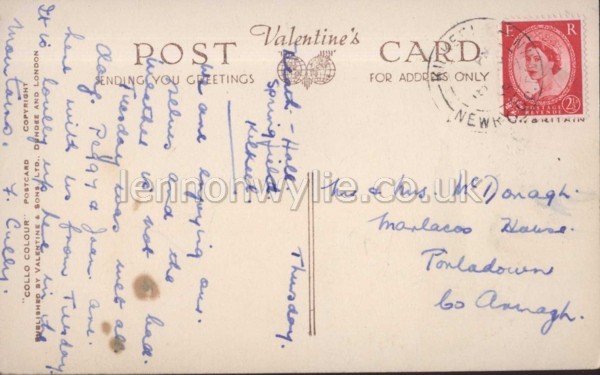 POST Valentine's CARD
SENDING YOU GREETINGS
FOR ADDRESS ONLY
E R
2½
NEWRY
BRITAIN
Hall
Springfield
Kilkeel
Thursday.
We are enjoying our
selves and the
weather is not to bad.
Tuesday was wet all
day. Peggy & Joan are
here with us from Tuesday
It is lovely up here in the
mountains. F. Cully.
Mr & Mrs. McDonagh.
Marlacoo House.
Portadown
Co Armagh
"COLLO COLOUR" POSTCARD COPYRIGHT
PUBLISHED BY VALENTINE & SONS, LTD., DUNDEE AND LONDON
lennonwylie.co.uk